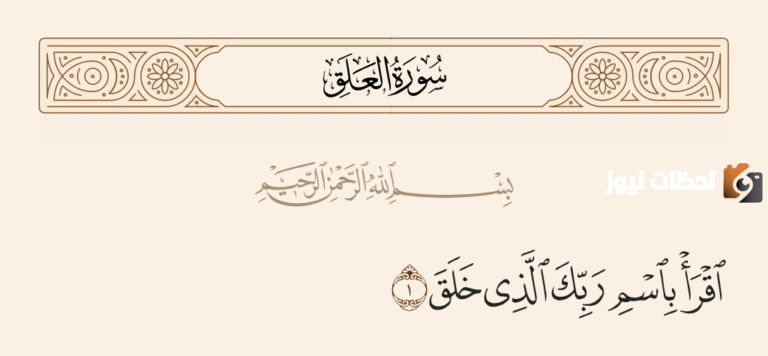 سُورَةُ العَلَقِ
بِسْمِ ٱللَّهِ ٱلرَّحْمَٰنِ ٱلرَّحِيمِ
لحظات نيوز
ٱقْرَأْ بِٱسْمِ رَبِّكَ ٱلَّذِى خَلَقَ ١